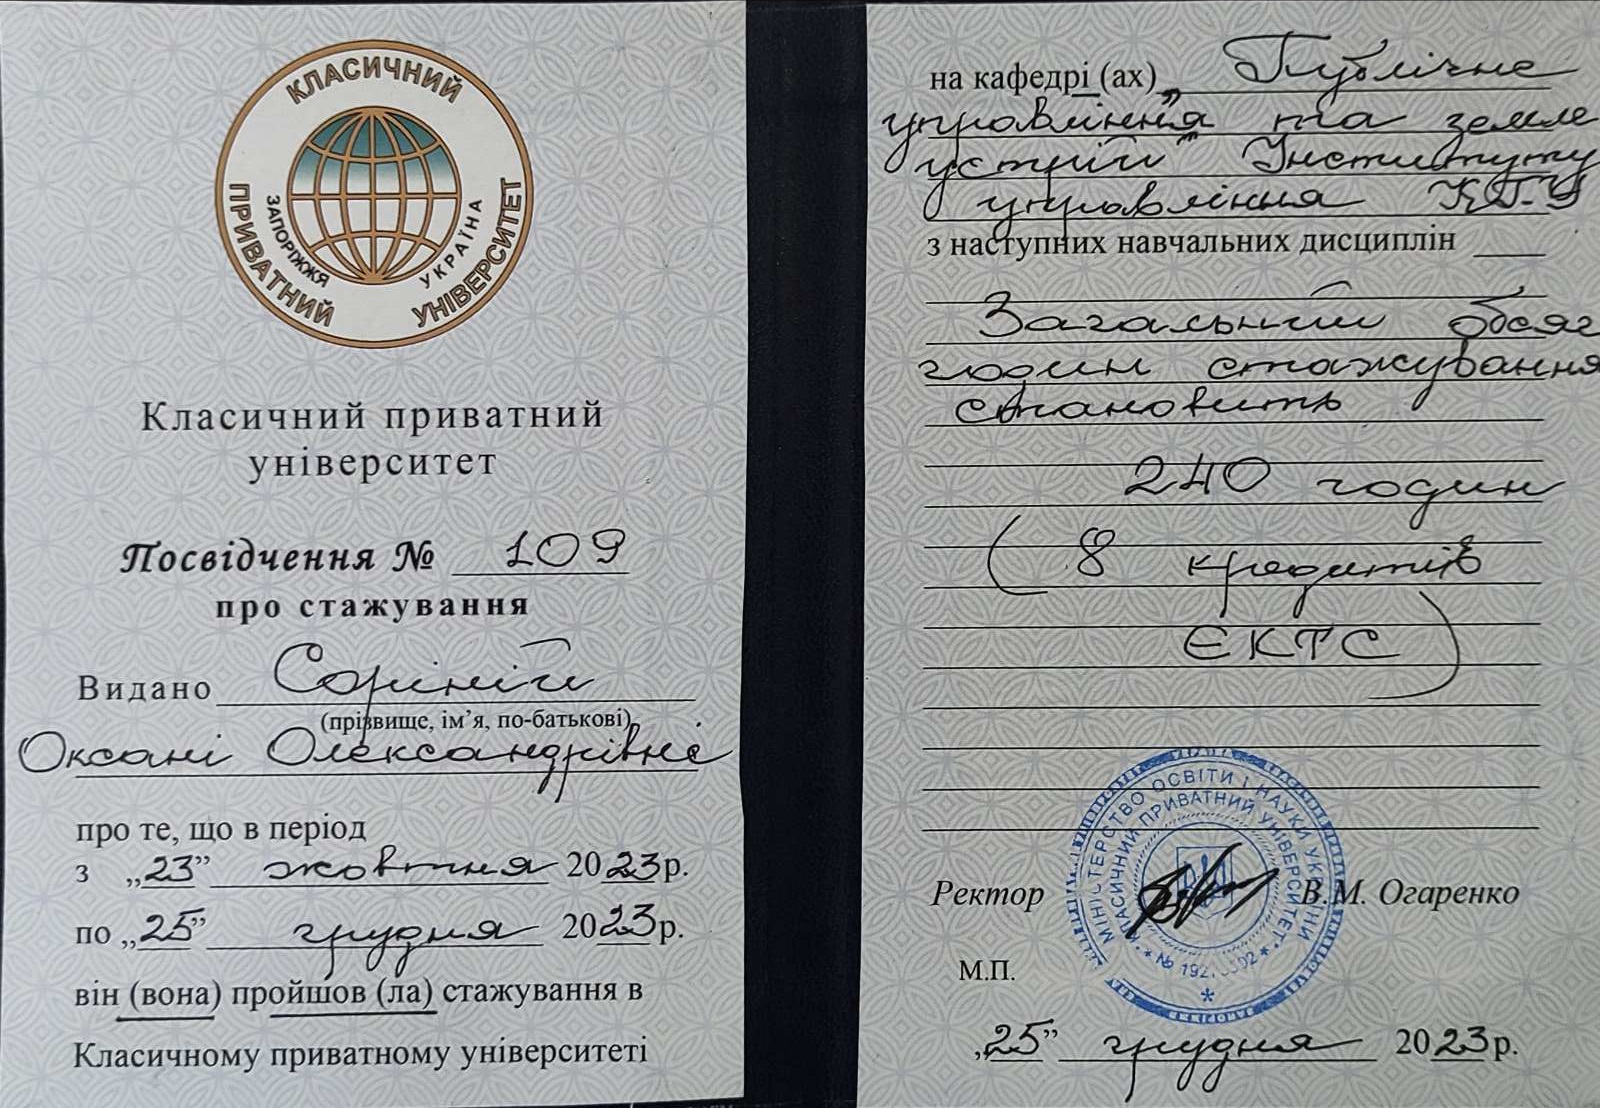 КЛАСИЧНИЙ
ПРИВАТНИЙ
УНІВЕРСИТЕТ
ЗАПОРІЖЖЯ
УКРАЇНА
Класичний приватний
університет
Посвідчення № 109
про стажування
Видано
(прізвище, ім’я, по-батькові)
Оксані Олександрівні
про те, що в період
з „23” жовтня 2023р.
по „25” грудня 2023р.
він (вона) пройшов (ла) стажування в
Класичному приватному університеті
на кафедрі (ах) „Публічне
управління та земле
устрій” Інституту
управління КПУ
з наступних навчальних дисциплін
Загальний обсяг
годин стажування
становить
240 годин
( 8 кредитів
ЄКТС )
МІНІСТЕРСТВО ОСВІТИ І НАУКИ УКРАЇНИ
КЛАСИЧНИЙ ПРИВАТНИЙ УНІВЕРСИТЕТ
Ректор В.М. Огаренко
М.П.
„25” грудня 2023р.